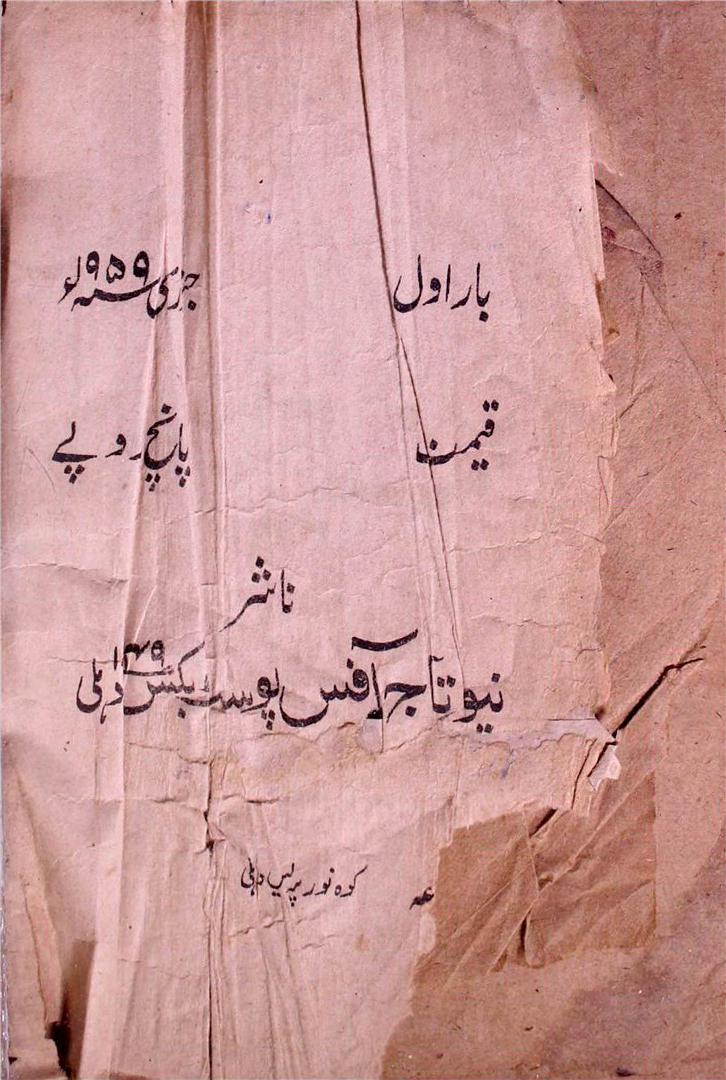 بار اول جنوری سنہ ۱۹۵۹ء
قیمت پانچ روپے
ناشر
نیو تاج آفس پوسٹ بکس ۱۷۴۹ دہلی
کوہ نور پریس دہلی